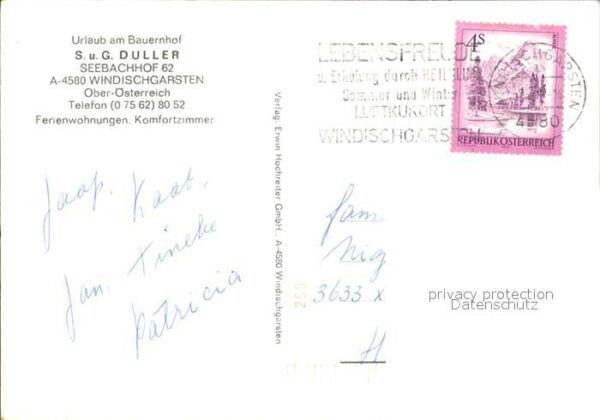 Urlaub am Bauernhof
S. u. G. DULLER
SEEBACHHOF 62
A-4580 WINDISCHGARSTEN
Ober-Österreich
Telefon (0 75 62) 80 52
Ferienwohnungen. Komfortzimmer
LEBENSFREUDE
u. Erholung durch HEILKLIMA
Sommer und Winter
LUFTKURORT
WINDISCHGARSTEN
4S
REPUBLIK ÖSTERREICH
WINDISCHGARSTEN
4580
Verlag: Erwin Hochreiter GmbH., A-4580 Windischgarsten
Jaap, Kaat,
Jan, Tineke
Patricia
fam.
3633 x
H
259
privacy protection
Datenschutz